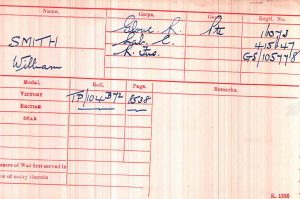 Name. Corps. Rank. Regtl. No.
SMITH
William
Glouc. R. Pte 18073
Lab. C. " 415147
R. Fus. " GS/105778
Medal. Roll. Page. Remarks.
VICTORY TP/104 B72 8538
BRITISH " "
STAR
Theatre of War first served in
Date of entry therein
K. 1380